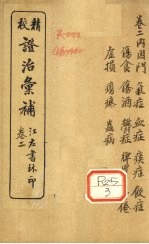 卷二內因門
氣症 血症 痰症 飲症
傷食 傷酒 鬱症
虛損 癆瘵 蟲病
精校
證治彙補
江左書林印
卷二
R25
3